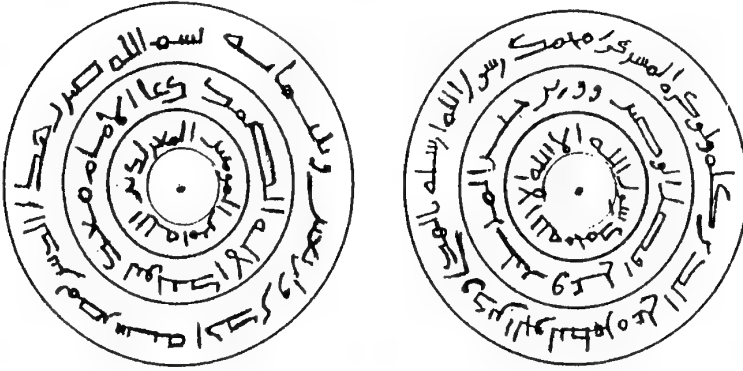 بسم الله ضرب هذا الدينر بمصر سنة احدى واربعين وثلثمائة
دعا الامام معد لتوحيد الاله الصمد
المعز لدين الله امير المؤمنين
محمد رسول الله ارسله بالهدى ودين الحق ليظهره على الدين كله ولو كره المشركون
وعلي افضل الوصيين ووزير خير المرسلين
لا اله الا الله محمد رسول الله